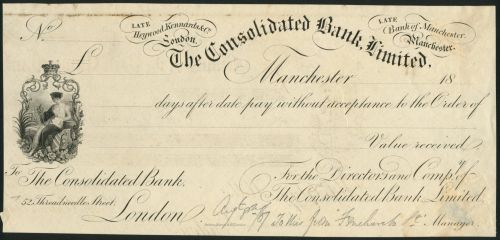 No
LATE
Heywood Kennards & Co
London.
LATE
Bank of Manchester
Manchester.
The Consolidated Bank, Limited.
£
Manchester 18
days after date pay without acceptance to the Order of
Value received
To The Consolidated Bank,
52 Threadneedle Street,
London
For the Directors and Compy. of
The Consolidated Bank Limited
Manager.